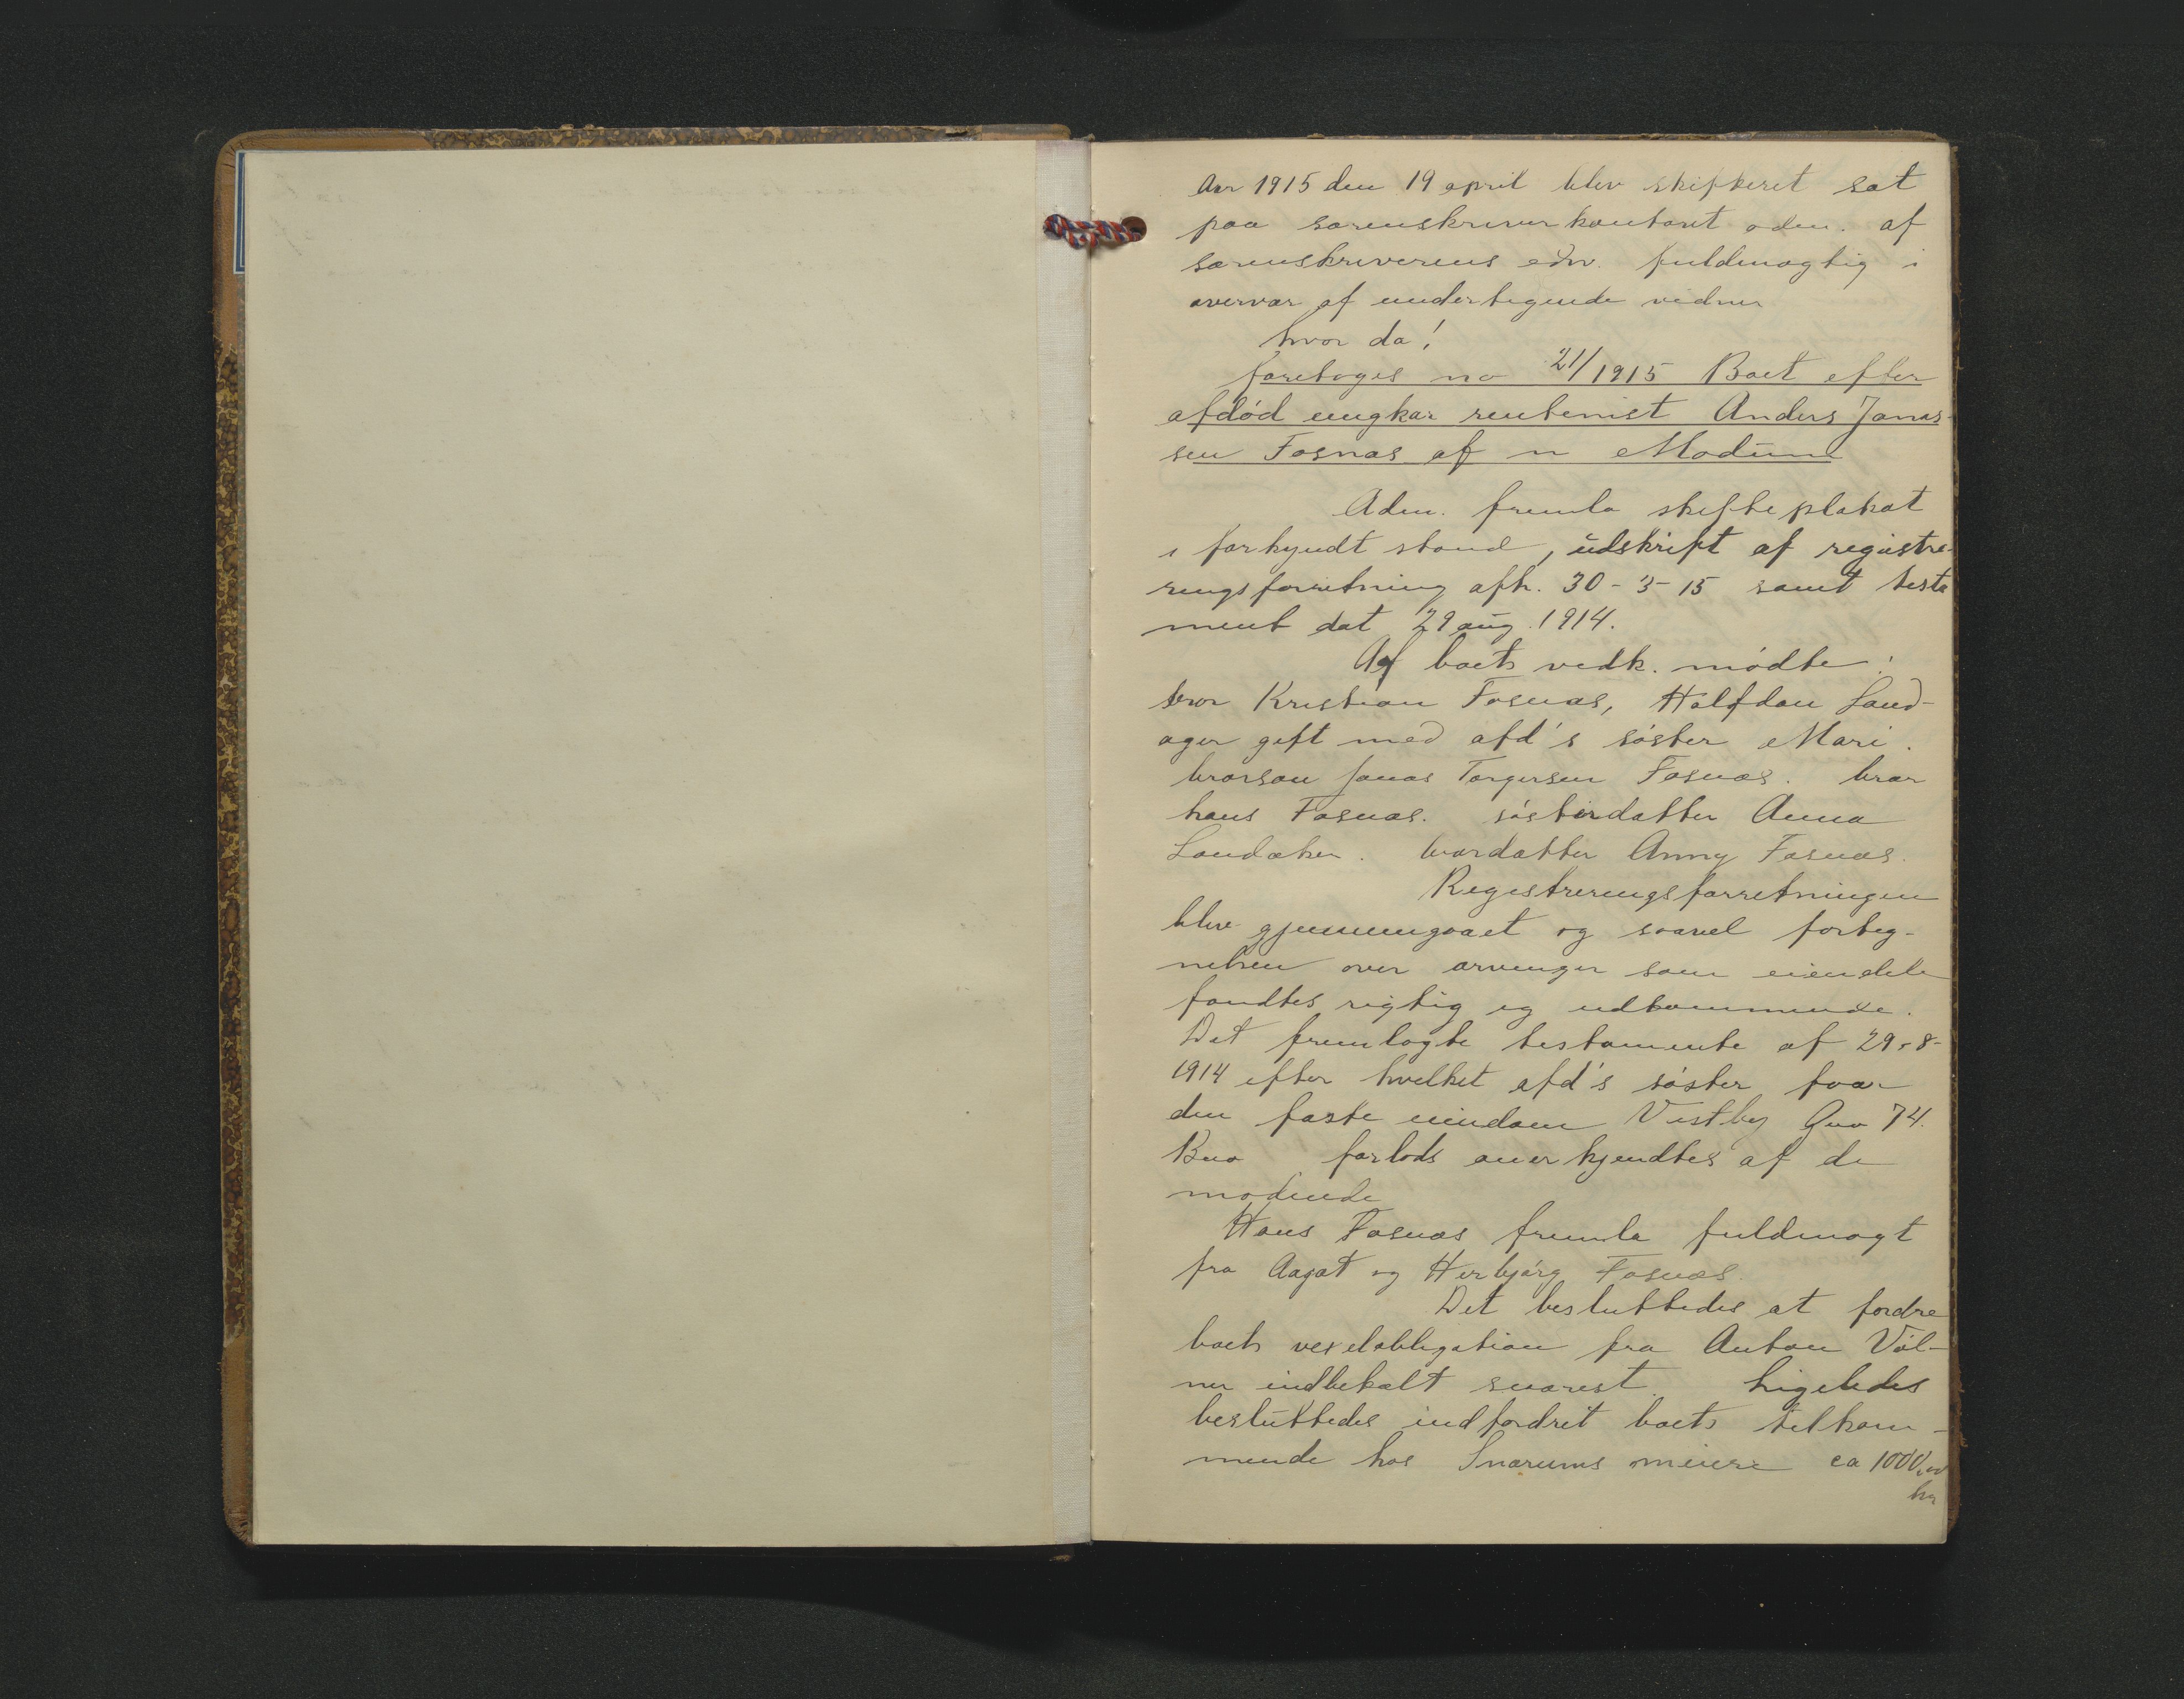 Aar 1915 den 19 april blev skifteret sat
paa sorenskriverkontoret adm. af
sorenskriverens edsv. fuldmægtig i
overvær af undertegnede vidner
hvor da!
foretoges no 21/1915 Boet efter
afdød ungkar rentenist Anders Jonas-
sen Fosnæs af n Modum
Adm. fremla skifteplakat
i forkyndt stand, udskrift af registre-
ringsforretning afh. 30-3-15 samt testa
ment dat 29 aug. 1914.
Af boets vedk. mødte:
bror Kristian Fosnæs, Halfdan Land-
ager gift med afd's søster Mari.
brorsøn Jonas Torgersen Fosnæs. bror
hans Fosnæs. søsterdatter Anna
Landaker. brordatter Anny Fosnæs.
Registreringsforretningen
blev gjennemgaaet og saavel forteg-
nelsen over arvinger som eiendele
fandtes rigtig og udtømmende.
Det fremlagte testamente af 29-8-
1914 efter hvilket afd's søster faar
den faste eiendom Vestby Gno 74.
Bno forlods anerkjendtes af de
mødende
Hans Fosnæs fremla fuldmagt
fra Aagot og Herbjørg Fosnæs.
Det besluttedes at fordre
boets vexelobligation fra Anton Vøl-
ner indbetalt snarest. Ligeledes
besluttedes indfordret boets tilkom-
mende hos Snarums meieri ca 1000,00
kr